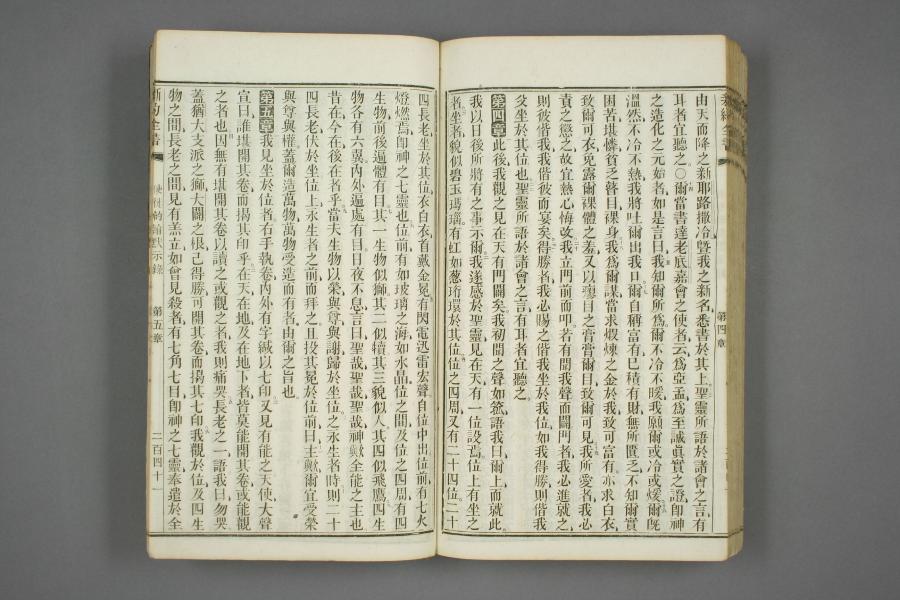 由天而降之新耶路撒冷曁我之新名悉書於其上聖靈所語於諸會之言有
耳者宜聽之〇爾當書達老底嘉會之使者云爲亞孟爲至誠眞實之證卽神
之造化之元始者如是言曰我知爾所爲爾不冷不暖我願爾或冷或煖爾旣
溫然不冷不熱我將吐爾出我口爾自稱富有已積有財無所匱乏不知爾實
困苦堪憐貧乏瞽目裸身我爲爾謀當求煅煉之金於我致可富有亦求白衣
致爾可衣免露爾裸體之羞又以 目之膏膏爾目致爾可見我所愛者我必
責之懲之故宜熱心悔改我立門前而叩若有聞我聲而闢門者我必進就之
則彼偕我我偕彼而宴矣得勝者我必賜之偕我坐於我位如我得勝則偕我
父坐於其位也聖靈所語於諸會之言有耳者宜聽之
第四章此後我觀之見在天有門闢矣我初聞之聲如 語我曰爾上而就此
我以日後所將有之事示爾我遂感於聖靈見在天有一位設焉位上有坐之
者坐者貌似碧玉瑪瑙有虹如葱珩環於其位位之四周又有二十四位二十
第四章
四長老坐於其位衣白衣首戴金冕有閃電迅雷宏聲自位中出位前有七火
燈燃焉卽神之七靈也位前有如玻璃之海如水晶位之間及位之四周有四
生物前後遍體有目其一生物似獅其二似犢其三貌似人其四似飛鷹四生
物各有六翼內外遍處有目日夜不息言曰聖哉聖哉聖哉神歟全能之主也
昔在今在後在者乎當夫生物以榮與尊與謝歸於坐位之永生者時則二十
四長老伏於坐位上永生者之前而拜之且投其冕於位前曰主歟爾宜受榮
與尊與權蓋爾造萬物萬物受造而有者由爾之旨也
第五章我見坐於位者右手執卷內外有字緘以七印又見有能之天使大聲
宣曰誰堪開其卷而揭其印乎在天在地及在地下者皆莫能開其卷或能觀
之者也因無有堪開其卷以讀之或觀之者我則痛哭長老之一語我曰勿哭
蓋猶大支派之獅大闢之根己得勝可開其卷而揭其七印我觀於位及四生
物之間長老之間見有羔立如曾見殺者有七角七目卽神之七靈奉遣於全
新約全書
使徒約翰默示錄
第五章
二百四十一